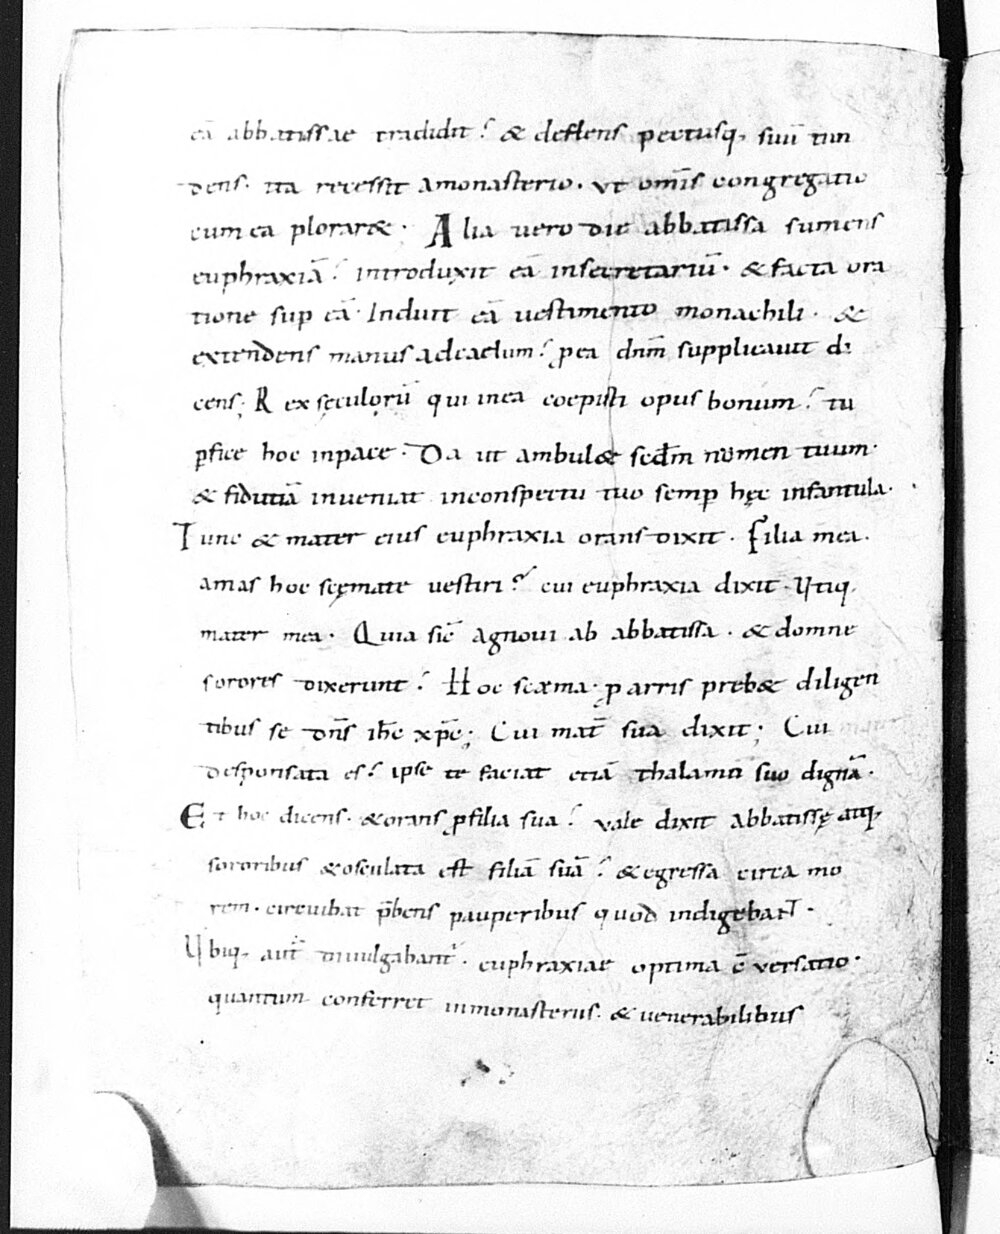 eā abbatissae tradidit ⁏ & deflens pectusq, suū tun
dens. ita recessit amonasterio. vt om̄is congregatio
cum ea plorar&. Alia vero die abbatissa sumens
euphraxiā ⁏ introduxit eā insecretariū. & facta ora
tione sup eā. Induit eā uestimento monachili. &
extendens manus adcaelum ⁏ p ea dnm̄ supplicauit di
cens; Rex sęculorū qui inea coepisti opus bonum ⁏ tu
pfice hoc inpace. Da ut ambul& secdm̄ nomen tuum.
& fidutiā inueniat inconspectu tuo semp hęc infantula.
Tunc & mater eius euphraxia orans dixit. Filia mea.
amas hoc scęmate vestiri ? cui euphraxia dixit. Utiq,
mater mea. Quia sic̄ agnoui ab abbatissa. & domne
sorores dixerunt ⁏ Hoc scæma. p arris preb& diligen
tibus se dn̄s ihc̄ xpc̄; Cui mat̄ sua dixit; Cui
desponsata es ⁏ ipse te faciat etiā thalamū suo dignā.
Et hoc dicens. & orans p filia sua ⁏ vale dixit abbatissę atq,
sororibus & osculata est filiā suā ⁏ & egressa circa mo
rem. circuibat p̄bens pauperibus quod indigebant.
Ubiq, aut̄ diuulgabant̄. euphraxiae optima c̄versatio.
quantum conferret inmonasteriis. & uenerabilibus